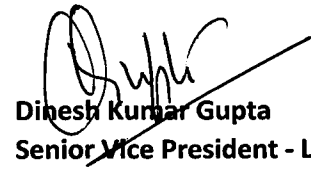 Dinesh Kumar Gupta
Senior Vice President - L